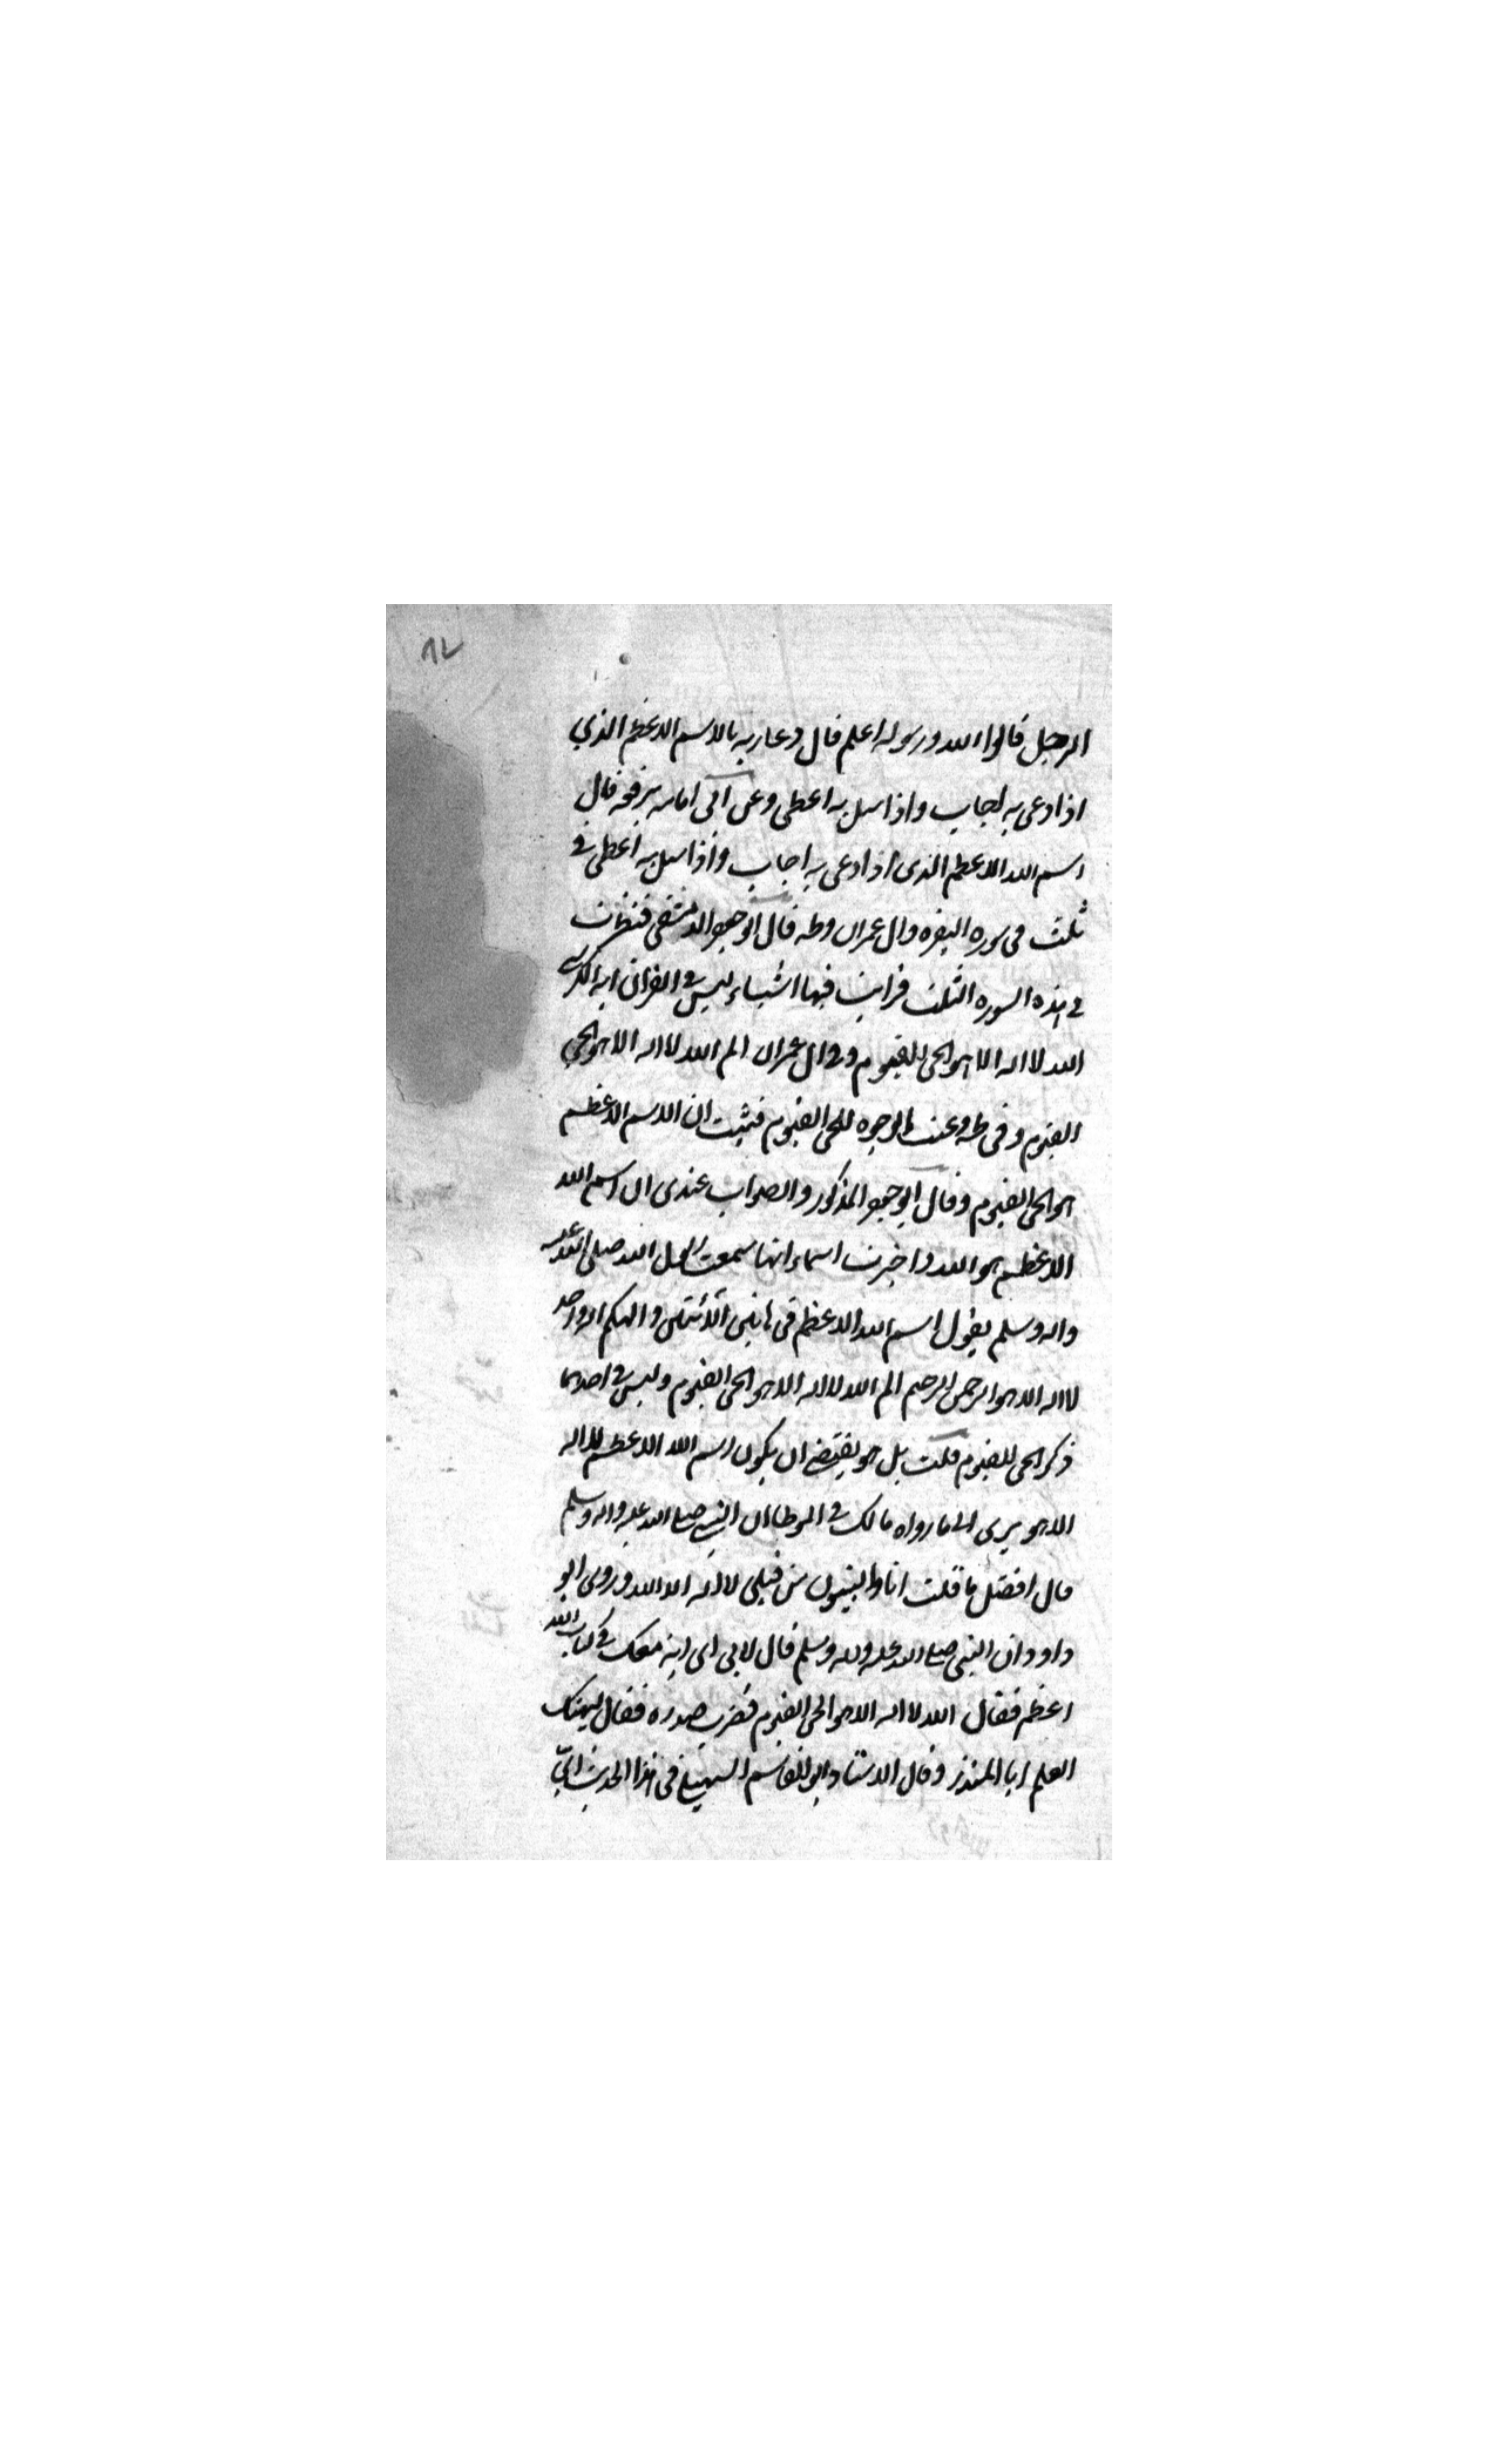 ٨٢
الرجل قالوا الله ورسوله اعلم قال دعا ربه بالاسم الاعظم الذي
اذا دعى به اجاب واذا سيل به اعطى وعن ابى امامه يرفعه قال
اسم الله الاعظم الذى اذا دعى به اجاب واذا سيل به اعطى فى
ثلث فى سوره البقره وال عمران وطه قال ابو جعفر الدمشقى فنظرت
فى هذه السوره الثلث فرايت فيها اشياء ليس فى القران ايه الكرسى
الله لا اله الا هو الحى القيوم وفى ال عمران الم الله لا اله الا هو الحي
القيوم وفى طه وعنت الوجوه للحى القيوم فثبت ان الاسم الاعظم
هو الحى القيوم وقال ابو جعفر المذكور والصواب عندى ان اسم الله
الاعظم هو الله واخبرت اسماء انها سمعت رسول الله صلى الله عليه
واله وسلم يقول اسم الله الاعظم فى هاتين الآيتين والهكم اله واحد
لا اله الا هو الرحمن الرحيم الم الله لا اله الا هو الحى القيوم وليس فى احدهما
ذكر الحى القيوم قلت بل هو يقتضى ان يكون اسم الله الاعظم لا اله
الا هو يرى الى ما رواه مالك فى الموطا ان النبى صلى الله عليه واله وسلم
قال افضل ما قلت انا والنبيون من قبلى لا اله الا الله وروى ابو
داود ان النبى صلى الله عليه واله وسلم قال لابى اى ايه معك فى كتاب الله
اعظم فقال الله لا اله الا هو الحى القيوم فضرب صدره فقال ليهنك
العلم ابا المنذر وقال الاستاد ابو القاسم السهيلى فى هذا الحديث انبىّ